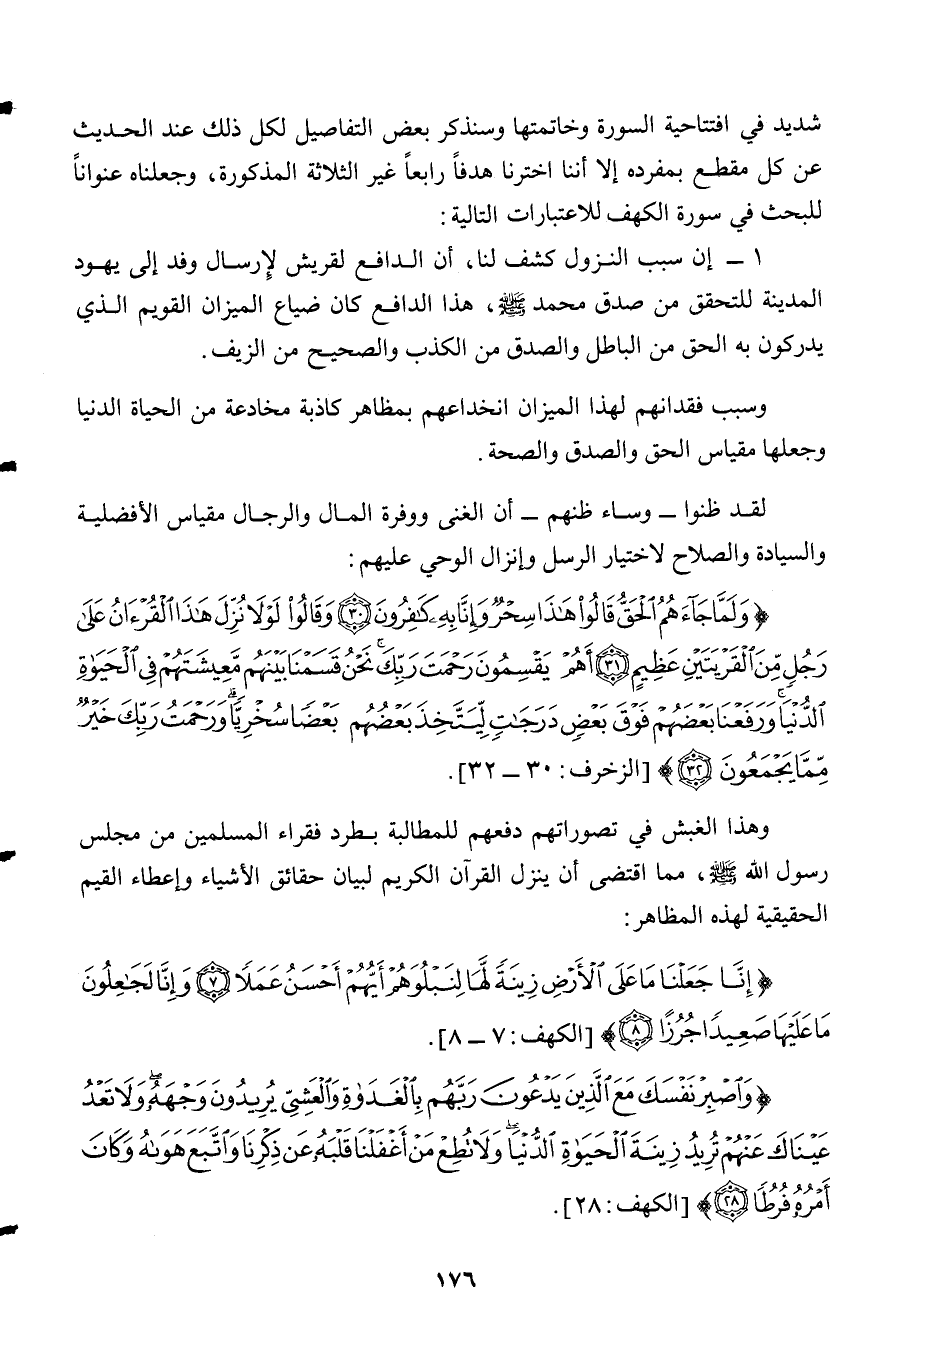 شديد في افتتاحية السورة وخاتمتها وسنذكر بعض التفاصيل لكل ذلك عند الحديث
عن كل مقطع بمفرده إلا أننا اخترنا هدفاً رابعاً غير الثلاثة المذكورة، وجعلناه عنواناً
للبحث في سورة الكهف للاعتبارات التالية:
١ ـ إن سبب النزول كشف لنا، أن الدافع لقريش لإرسال وفد إلى يهود
المدينة للتحقق من صدق محمد ﷺ، هذا الدافع كان ضياع الميزان القويم الذي
يدركون به الحق من الباطل والصدق من الكذب والصحيح من الزيف.
وسبب فقدانهم لهذا الميزان انخداعهم بمظاهر كاذبة مخادعة من الحياة الدنيا
وجعلها مقياس الحق والصدق والصحة.
لقد ظنوا ـ وساء ظنهم ـ أن الغنى ووفرة المال والرجال مقياس الأفضلية
والسيادة والصلاح لاختيار الرسل وإنزال الوحي عليهم:
﴿ وَلَمَّا جَآءَهُمُ ٱلْحَقُّ قَالُوا۟ هَٰذَا سِحْرٌ وَإِنَّا بِهِۦ كَٰفِرُونَ ۝٣٠ وَقَالُوا۟ لَوْلَا نُزِّلَ هَٰذَا ٱلْقُرْءَانُ عَلَىٰ
رَجُلٍ مِّنَ ٱلْقَرْيَتَيْنِ عَظِيمٍ ۝٣١ أَهُمْ يَقْسِمُونَ رَحْمَتَ رَبِّكَ ۚ نَحْنُ قَسَمْنَا بَيْنَهُم مَّعِيشَتَهُمْ فِى ٱلْحَيَوٰةِ
ٱلدُّنْيَا ۚ وَرَفَعْنَا بَعْضَهُمْ فَوْقَ بَعْضٍ دَرَجَٰتٍ لِّيَتَّخِذَ بَعْضُهُم بَعْضًا سُخْرِيًّا ۗ وَرَحْمَتُ رَبِّكَ خَيْرٌ
مِّمَّا يَجْمَعُونَ ۝٣٢ ﴾ [الزخرف: ٣٠ ـ ٣٢].
وهذا الغبش في تصوراتهم دفعهم للمطالبة بطرد فقراء المسلمين من مجلس
رسول الله ﷺ، مما اقتضى أن ينزل القرآن الكريم لبيان حقائق الأشياء وإعطاء القيم
الحقيقية لهذه المظاهر:
﴿ إِنَّا جَعَلْنَا مَا عَلَى ٱلْأَرْضِ زِينَةً لَّهَا لِنَبْلُوَهُمْ أَيُّهُمْ أَحْسَنُ عَمَلًا ۝٧ وَإِنَّا لَجَٰعِلُونَ
مَا عَلَيْهَا صَعِيدًا جُرُزًا ۝٨ ﴾ [الكهف: ٧ ـ ٨].
﴿ وَٱصْبِرْ نَفْسَكَ مَعَ ٱلَّذِينَ يَدْعُونَ رَبَّهُم بِٱلْغَدَوٰةِ وَٱلْعَشِىِّ يُرِيدُونَ وَجْهَهُۥ ۖ وَلَا تَعْدُ
عَيْنَاكَ عَنْهُمْ تُرِيدُ زِينَةَ ٱلْحَيَوٰةِ ٱلدُّنْيَا ۖ وَلَا تُطِعْ مَنْ أَغْفَلْنَا قَلْبَهُۥ عَن ذِكْرِنَا وَٱتَّبَعَ هَوَىٰهُ وَكَانَ
أَمْرُهُۥ فُرُطًا ۝٢٨ ﴾ [الكهف: ٢٨].
١٧٦